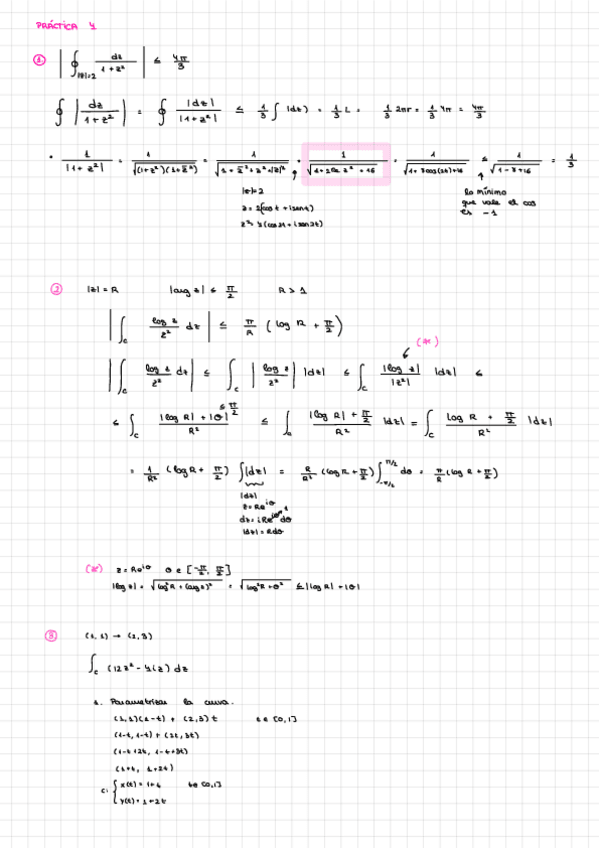 PRÁCTICA 4
① | ∮_{|z|=2} dz / (1+z²) | ≤ 4π/3
∮ | dz / (1+z²) | = ∮ |dz| / |1+z²| ≤ 1/3 ∫ |dz| = 1/3 L = 1/3 2πr = 1/3 4π = 4π/3
• 1/|1+z²| = 1/√((1+z²)(1+z̄²)) = 1/√(1+z̄²+z²+|z|⁴) = 1/√(1+2Re z²+16) = 1/√(1+8cos(2t)+16) ≤ 1/√(1-8+16) = 1/3
|z|=2
z = 2(cos t + i sen t)
z² = 4(cos 2t + i sen 2t)
lo mínimo
que vale el cos
es -1
② |z| = R |arg z| ≤ π/2 R > 1
| ∫_C log z / z² dz | ≤ π/R ( log R + π/2 )
(*)
| ∫_C log z / z² dz | ≤ ∫_C | log z / z² | |dz| ≤ ∫_C |log z| / |z²| |dz| ≤
≤ ∫_C (|log R| + |θ|) / R² ≤ ∫_C (|log R| + π/2) / R² |dz| = ∫_C (log R + π/2) / R² |dz|
≤ π/2
= 1/R² (log R + π/2) ∫ |dz| = R/R² (log R + π/2) ∫_{-π/2}^{π/2} dθ = π/R (log R + π/2)
|dz|
z = Re^{iθ}
dz = iRe^{iθ} dθ
|dz| = R dθ
(*) z = Re^{iθ} θ ∈ [-π/2, π/2]
|log z| = √(log²R + (arg z)²) = √(log²R + θ²) ≤ |log R| + |θ|
③ (1,1) → (2,3)
∫_C (12z² - 4iz) dz
1. Parametrizar la curva.
(1,1)(1-t) + (2,3)t t ∈ [0,1]
(1-t, 1-t) + (2t, 3t)
(1-t+2t, 1-t+3t)
(1+t, 1+2t)
C: { x(t) = 1+t t ∈ [0,1]
y(t) = 1+2t